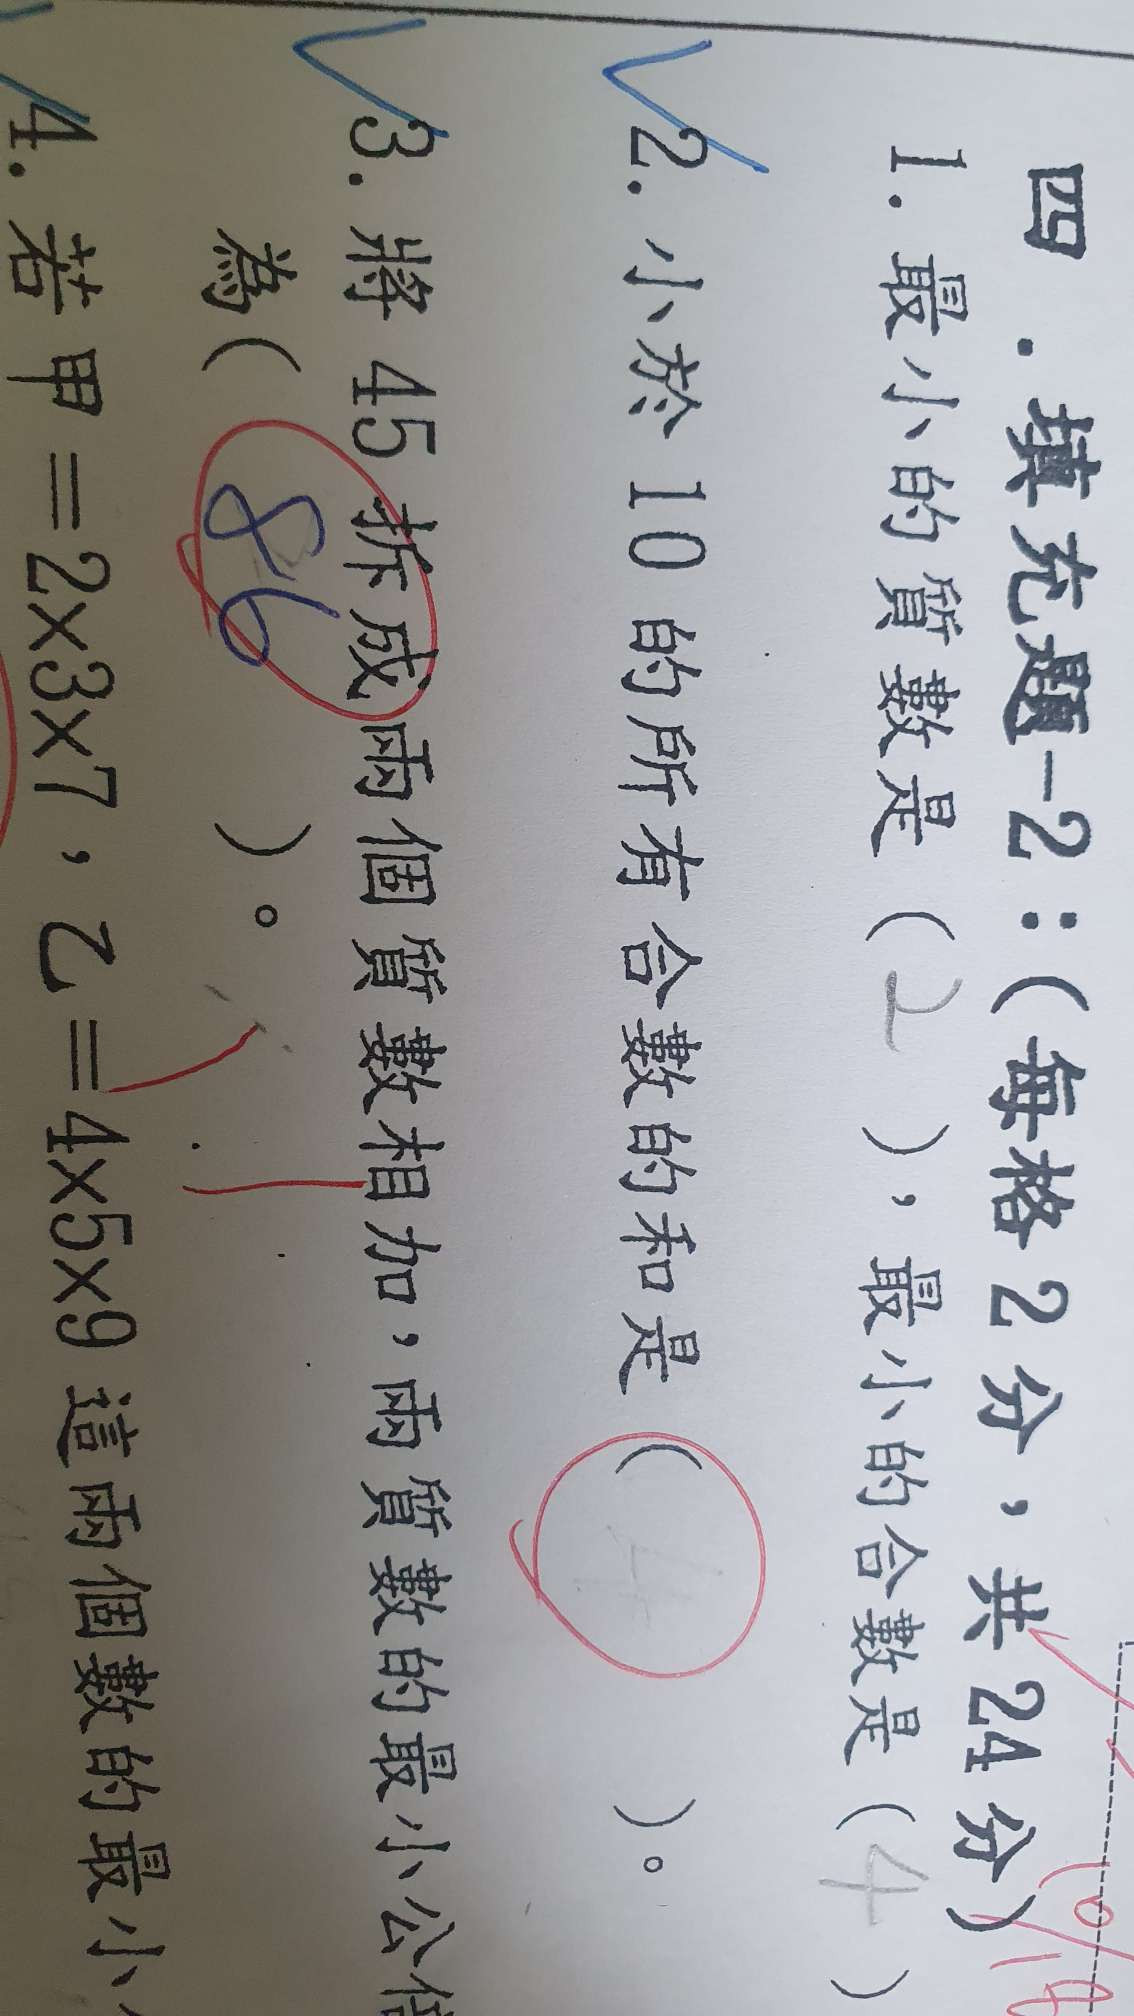 四．填充題-2：（每格 2 分，共 24 分）
1. 最小的質數是（ 2 ），最小的合數是（ 4 ）
2. 小於 10 的所有合數的和是（ 4 ）。
3. 將 45 拆成兩個質數相加，兩質數的最小公倍
為（ 86 ）。
4. 若甲＝2×3×7，乙＝4×5×9 這兩個數的最小